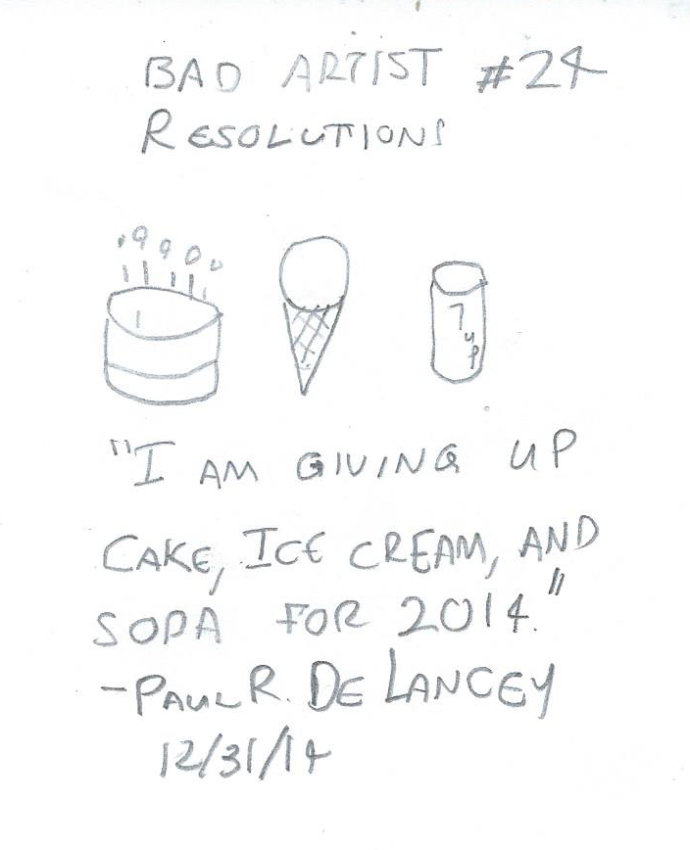 BAD ARTIST #24
RESOLUTIONS
7
up
"I AM GIVING UP
CAKE, ICE CREAM, AND
SODA FOR 2014."
-PAUL R. DE LANCEY
12/31/14